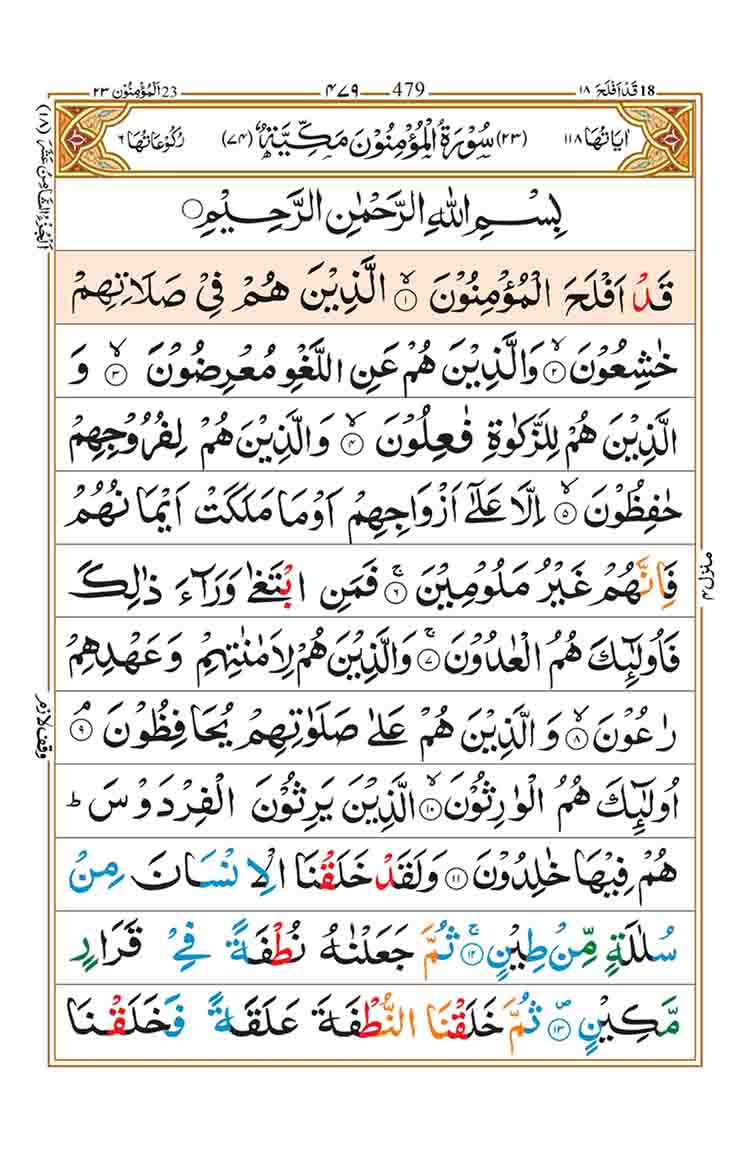 18 قَدْ اَفْلَحَ ١٨ 479 ٤٧٩ 23 اَلْمُؤْمِنُوْن ٢٣
اٰيَاتُهَا ١١٨ (٢٣) سُوْرَةُ الْمُؤْمِنُوْنَ مَكِّيَّةٌ (٧٤) رُكُوْعَاتُهَا ٦
بِسْمِ اللّٰهِ الرَّحْمٰنِ الرَّحِيْمِ
قَدْ اَفْلَحَ الْمُؤْمِنُوْنَ ۙ‏ ١ الَّذِيْنَ هُمْ فِىْ صَلَاتِهِمْ
خٰشِعُوْنَ ۙ‏ ٢ وَالَّذِيْنَ هُمْ عَنِ اللَّغْوِ مُعْرِضُوْنَ ۙ‏ ٣ وَ
الَّذِيْنَ هُمْ لِلزَّكٰوةِ فٰعِلُوْنَ ۙ‏ ٤ وَالَّذِيْنَ هُمْ لِفُرُوْجِهِمْ
حٰفِظُوْنَ ۙ‏ ٥ اِلَّا عَلٰٓى اَزْوَاجِهِمْ اَوْ مَا مَلَكَتْ اَيْمَانُهُمْ
فَاِنَّهُمْ غَيْرُ مَلُوْمِيْنَ ۚ‏ ٦ فَمَنِ ابْتَغٰى وَرَآءَ ذٰلِكَ
فَاُولٰٓئِكَ هُمُ الْعٰدُوْنَ ۚ‏ ٧ وَالَّذِيْنَ هُمْ لِاَمٰنٰتِهِمْ وَعَهْدِهِمْ
رٰعُوْنَ ۙ‏ ٨ وَالَّذِيْنَ هُمْ عَلٰى صَلَوٰتِهِمْ يُحَافِظُوْنَ ۘ‏ ٩
اُولٰٓئِكَ هُمُ الْوٰرِثُوْنَ ۙ‏ ١٠ الَّذِيْنَ يَرِثُوْنَ الْفِرْدَوْسَ ؕ
هُمْ فِيْهَا خٰلِدُوْنَ ١١ وَلَقَدْ خَلَقْنَا الْاِنْسَانَ مِنْ
سُلٰلَةٍ مِّنْ طِيْنٍ ۚ‏ ١٢ ثُمَّ جَعَلْنٰهُ نُطْفَةً فِىْ قَرَارٍ
مَّكِيْنٍ ۖ‏ ١٣ ثُمَّ خَلَقْنَا النُّطْفَةَ عَلَقَةً فَخَلَقْنَا
اَلْجُزْءُ الثَّامِنُ عَشَرَ (١٨)
منزل ٤
وقف لازم